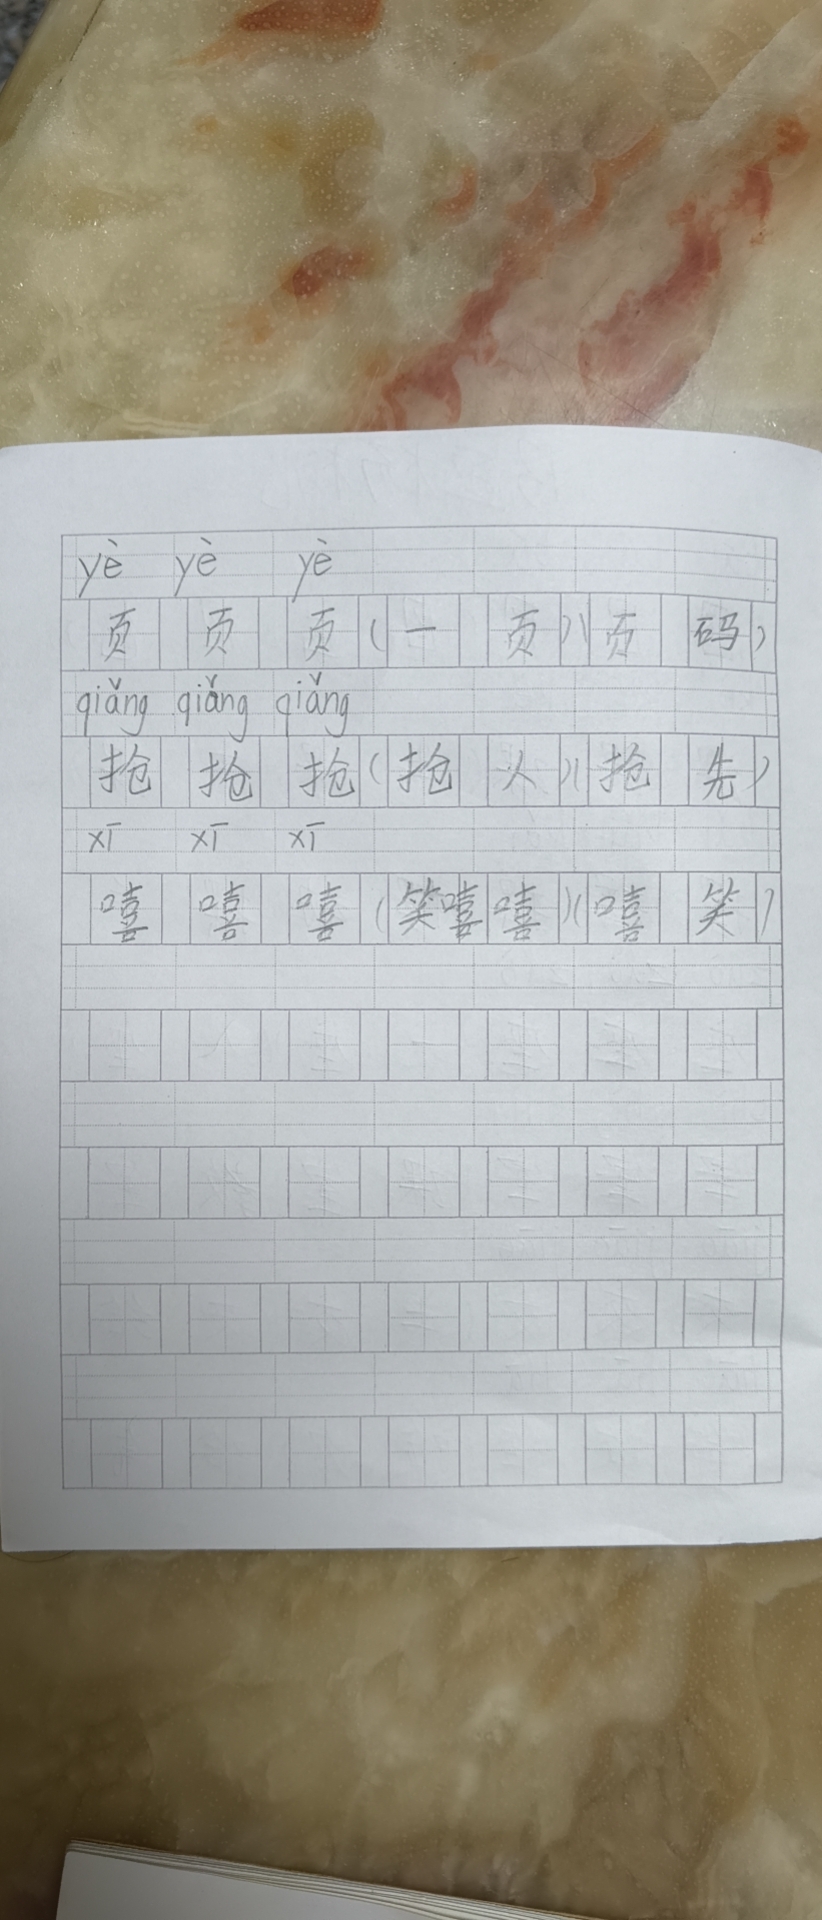 yè yè yè
页 页 页(一页)(页码)
qiǎng qiǎng qiǎng
抢 抢 抢(抢人)(抢先)
xī xī xī
嘻 嘻 嘻(笑嘻嘻)(嘻笑)